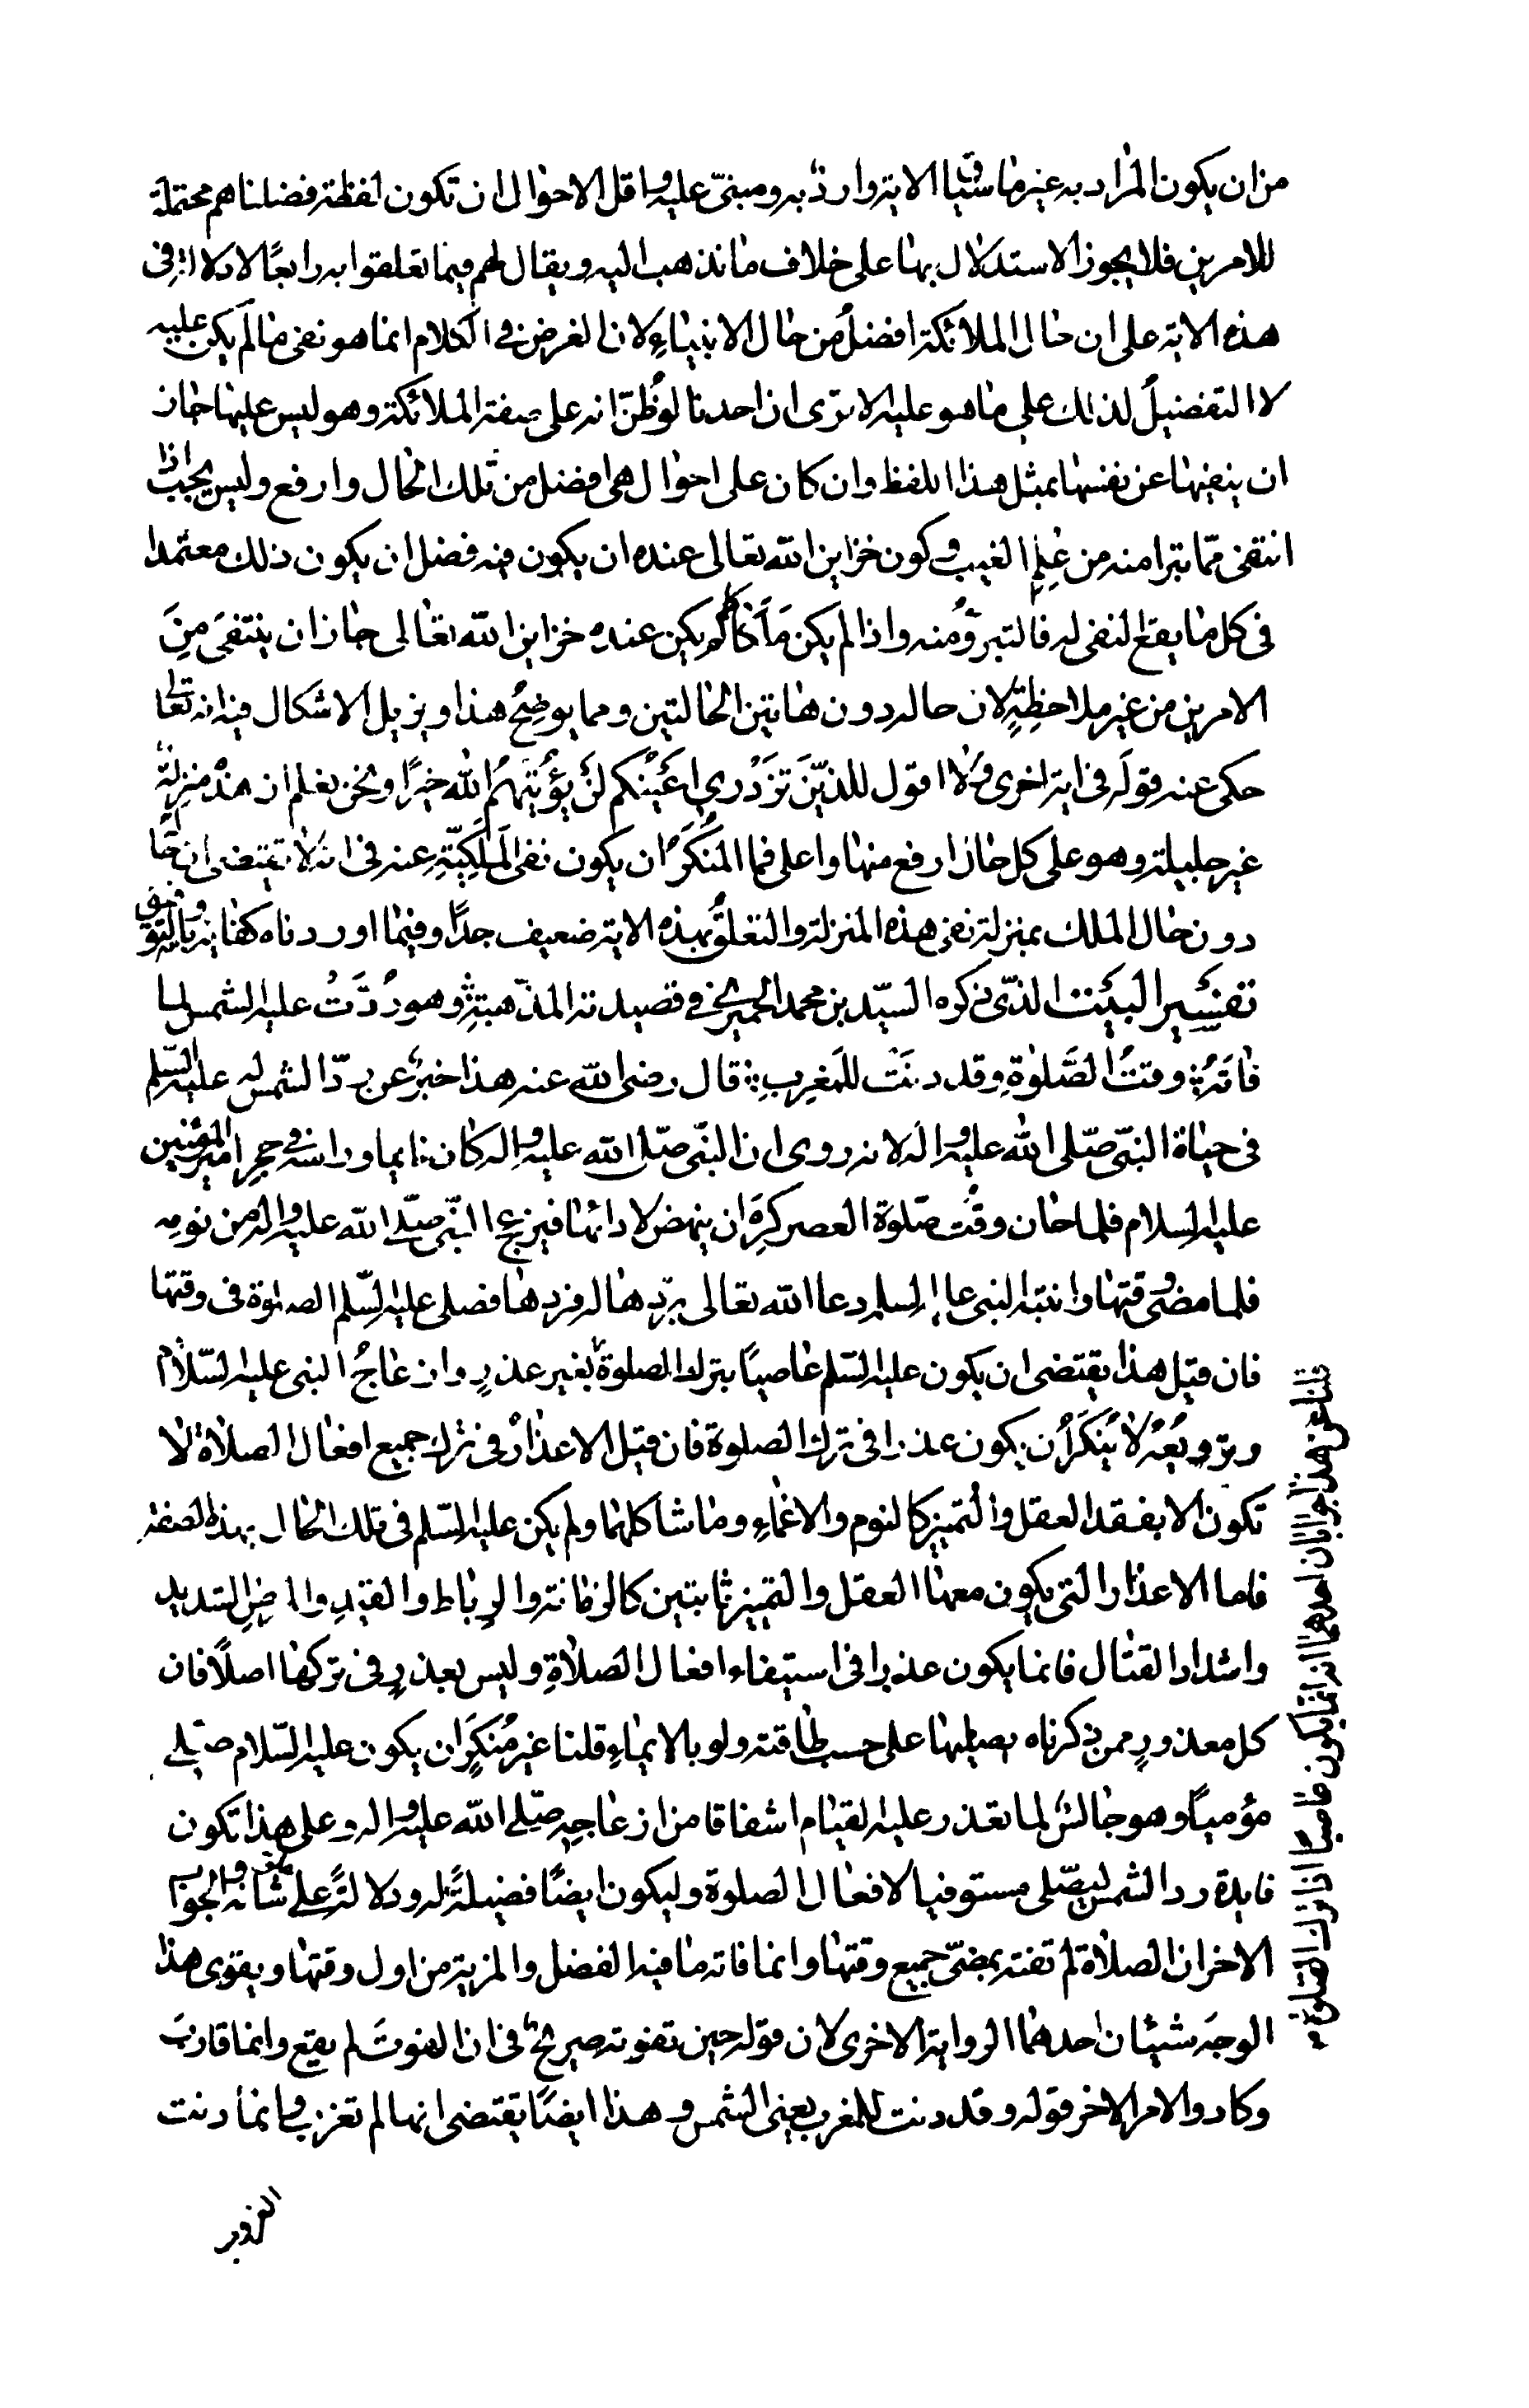 من ان يكون المراد به غير ما سقنا الاية واردة به ومبنى عليه واقل الاحوال ان تكون لفظة فضلناهم محتملة
للامرين فلا يجوز الاستدلال بها على خلاف ما نذهب اليه ويقال لهم فيما تعلقوا به رابعًا لا دلالة في
هذه الاية على ان حال الملائكة افضل من حال الانبياء لان الغرض في الكلام انما هو نفى ما لم يكن عليه
لا التفضيل لذلك على ما هو عليه الا ترى ان احدنا لو ظُنّ انه على صفة الملائكة وهو ليس عليها جاز
ان ينفيها عن نفسه بمثل هذا اللفظ وان كان على احوال هى افضل من تلك الحال وارفع وليس يجب اذا
انتفى مما تبرا منه من علم الغيب وكون خزاين الله تعالى عنده ان يكون فيه فضل ان يكون ذلك معتمدا
فى كل ما يقع النفى له فالتبرؤ منه واذا لم يكن ملكا كما لم يكن عنده خزاين الله تعالى جاز ان ينتفى من
الامرين من غير ملاحظة لان حاله دون هاتين الحالتين ومما يوضح هذا ويزيل الاشكال فيه انه تعالى
حكى عنه قوله في اية اخرى ولا اقول للذين تَزْدَرى اَعْيُنكم لَنْ يُؤْتِيَهُمُ الله خيرًا ونحن نعلم ان هذه منزلة
غير جليلة وهو على كل حال ارفع منها واعلى فما المنكر ان يكون نفى الملكية عنه فى انه لا يقتضى ان حاله
دون حال الملك بمنزلة نفى هذه المنزلة والتعلق بهذه الاية ضعيف جدًا وفيما اوردناه كفاية وبالله التوفيق
تفسير البيت الذى ذكره السيد بن محمد الحميرى في قصيدته المذهبة وهو رُدَّتْ عليه الشمس لما
فاته وقت الصَّلوٰةِ وقد دنَتْ للمَغرِبِ قال رضى الله عنه هذا خبر عن ردّ الشمس له عليه السلم
فى حياة النبى صلى الله عليه واله لانه روى ان النبى صلى الله عليه واله كان نايما وراسه في حجر امير المؤمنين
عليه السلام فلما حان وقت صلوة العصر كَرِهَ ان ينهض لادائها فيزعج النبى صلى الله عليه واله من نومه
فلما مضى وقتها وانتبه النبى عليه السلم دعا الله تعالى بردها له فردها فصلى عليه السلم الصلوة فى وقتها
فان قيل هذا يقتضى ان يكون عليه السلم عاصيًا بترك الصلوة بغير عذرٍ وازعاجُ النبى عليه السلام
وترويعُهُ لا يُنكَرُ اَن يكون عذرا فى ترك الصلوة فان قيل الاعذار فى ترك جميع افعال الصلاة لا
تكون الا بفقد العقل والتميز كالنوم والاغماء وما شاكلهما ولم يكن عليه السلم فى تلك الحال بهذه الصفة
فاما الاعذار التى يكون معها العقل والتميز ثابتين كالزمانة والرباط والقيد والمرض الشديد
واشتداد القتال فانما يكون عذرا فى استيفاء افعال الصلاة وليس بعذر فى تركها اصلاً فان
كل معذورٍ ممن ذكرناه يصليها على حسب طاقته ولو بالايماء قلنا غير مُنكَرٍ ان يكون عليه السلام صلى
مؤميًا وهو جالسٌ لما تعذر عليه القيام اشفاقا من ازعاجه صلى الله عليه واله وعلى هذا تكون
فايدة رد الشمس ليصلى مستوفيا لافعال الصلوة وليكون ايضًا فضيلةً له ودلالة على عظم شانه والجواب
الاخر ان الصلاة لم تفته بمضى جميع وقتها وانما فاته ما فيه الفضل والمزية من اول وقتها ويقوى هذا
الوجه شيئان احدهما الرواية الاخرى لان قوله حين تفوته صريح فى ان الفوت لم يقع وانما قارب
وكاد والامر الاخر قوله وقد دنت للمغرب يعنى الشمس وهذا ايضًا يقتضى انها لم تغرب وانما دنت
قلنا عن هذا جوابان احدهما انه انما يكون عاصيا اذا ترك الصلوة
الغروب